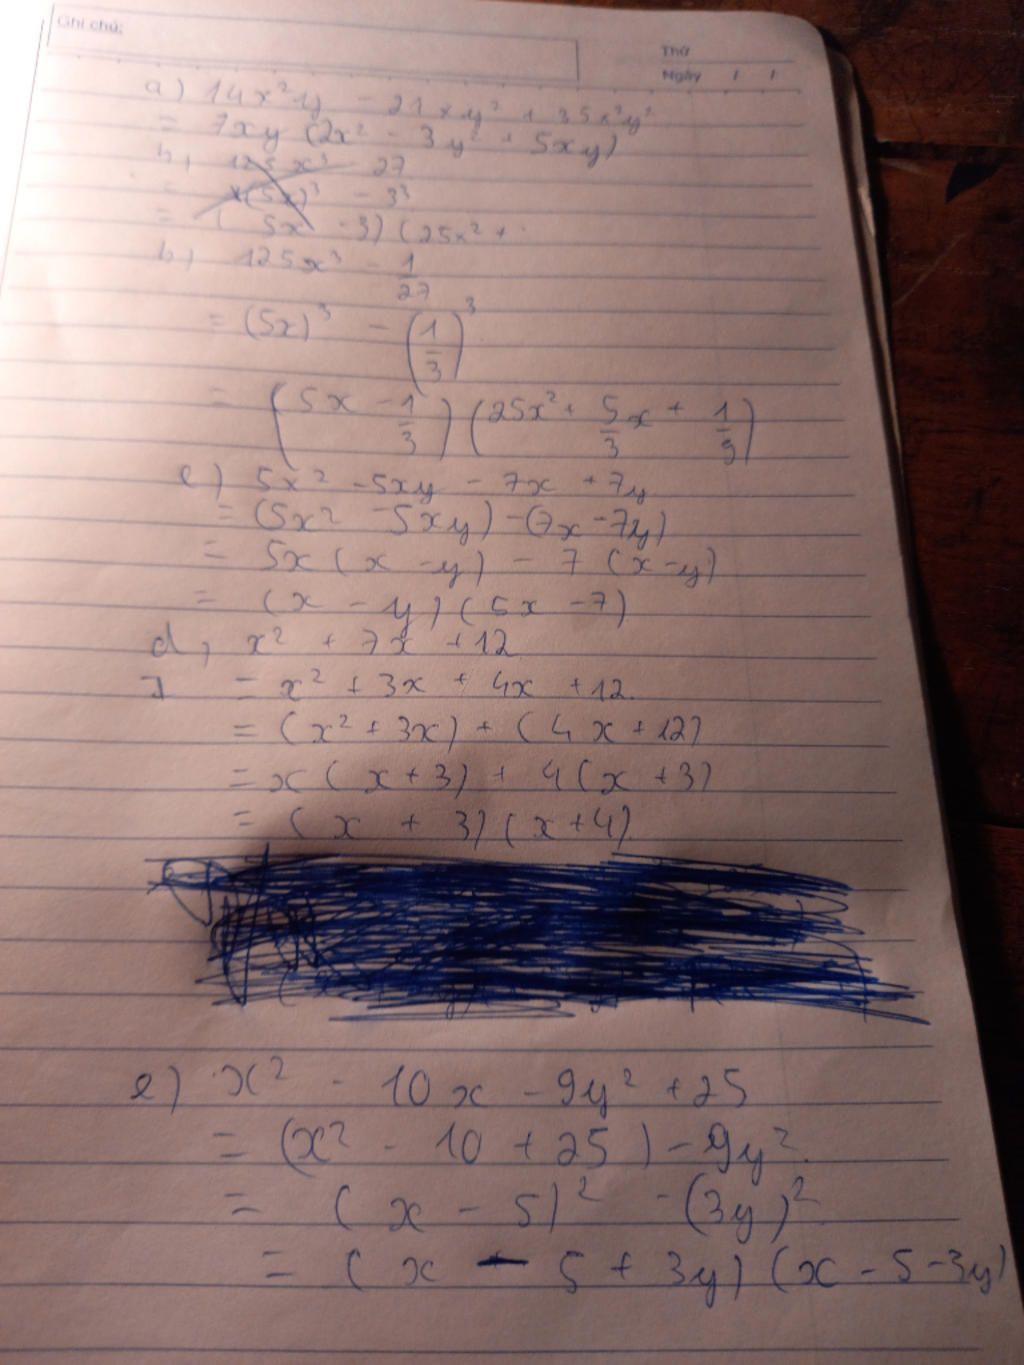 Ghi chú:
Thứ
Ngày / /
a) 14x²y - 21xy² + 35x²y²
= 7xy (2x² - 3y² + 5xy)
b, 125x³ - 27
= (5x)³ - 3³
= (5x - 3) (25x² +
b, 125x³ - 1/27
= (5x)³ - (1/3)³
= (5x - 1/3) (25x² + 5/3x + 1/9)
c) 5x² - 5xy - 7x + 7y
= (5x² - 5xy) - (7x - 7y)
= 5x (x - y) - 7 (x - y)
= (x - y) (5x - 7)
d, x² + 7x + 12
= x² + 3x + 4x + 12
= (x² + 3x) + (4x + 12)
= x (x + 3) + 4 (x + 3)
= (x + 3) (x + 4)
e) x² - 10x - 9y² + 25
= (x² - 10 + 25) - 9y²
= (x - 5)² - (3y)²
= (x - 5 + 3y) (x - 5 - 3y)